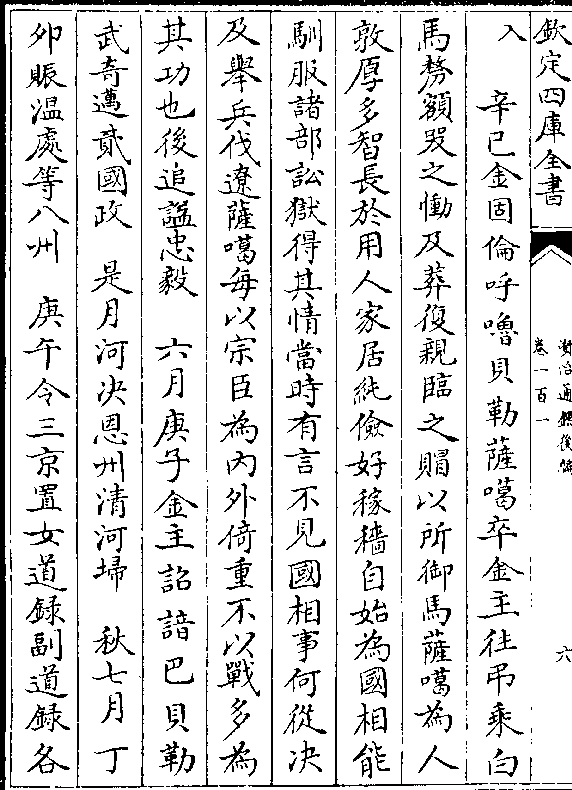 欽定四庫全書
資治通鑑後編
卷一百一
六
入　辛已金固倫呼嚕貝勒薩噶卒金主往弔乘白
馬剺額哭之慟及葬復親臨之賵以所御馬薩噶為人
敦厚多智長於用人家居純儉好稼穡自始為國相能
馴服諸部訟獄得其情當時有言不見國相事何從决
及舉兵伐遼薩噶每以宗臣為内外倚重不以戰多為
其功也後追謚忠毅　六月庚子金主詔諳巴貝勒
武奇邁貳國政　是月河决恩州清河埽　秋七月丁
夘賑温處等八州　庚午令三京置女道録副道録各